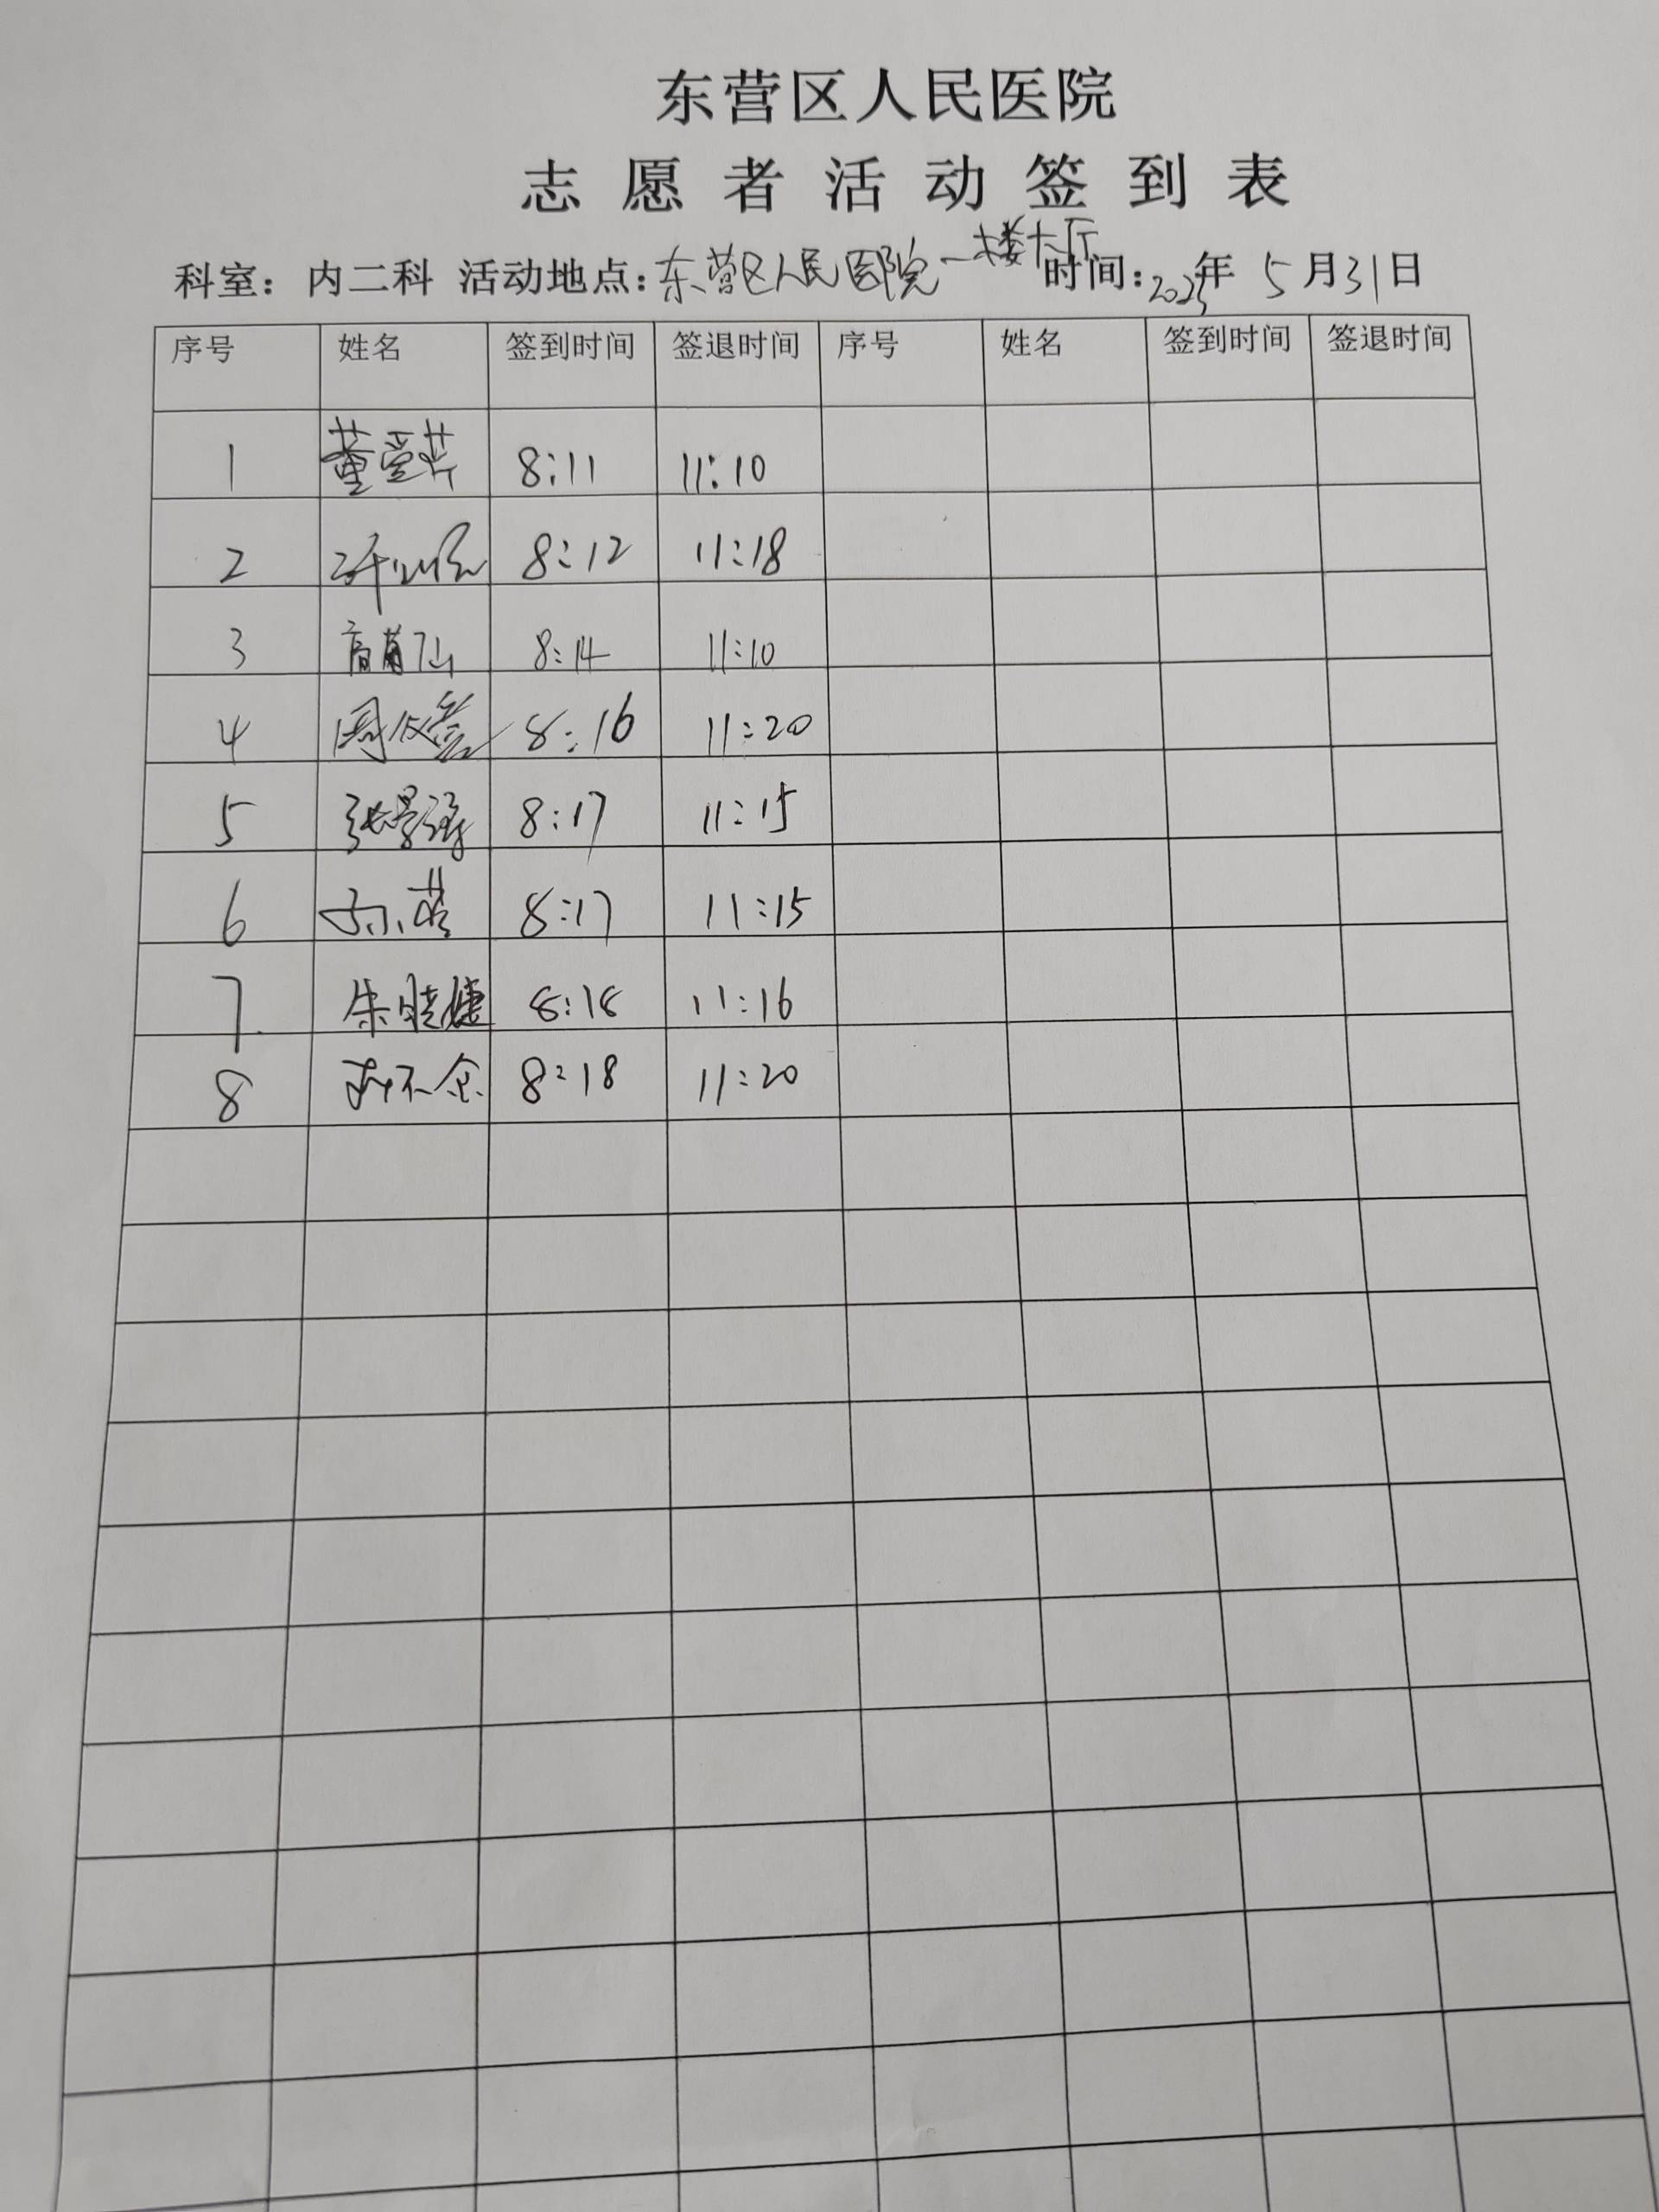 东营区人民医院
志愿者活动签到表
科室：内二科 活动地点：东营区人民医院一楼大厅 时间：2025年 5月31日
序号 姓名 签到时间 签退时间 序号 姓名 签到时间 签退时间
1 董爱芹 8:11 11:10
2 8:12 11:18
3 高菊仙 8:14 11:10
4 周 8:16 11:20
5 张景 8:17 11:15
6 8:17 11:15
7 朱晓捷 8:18 11:16
8 8:18 11:20